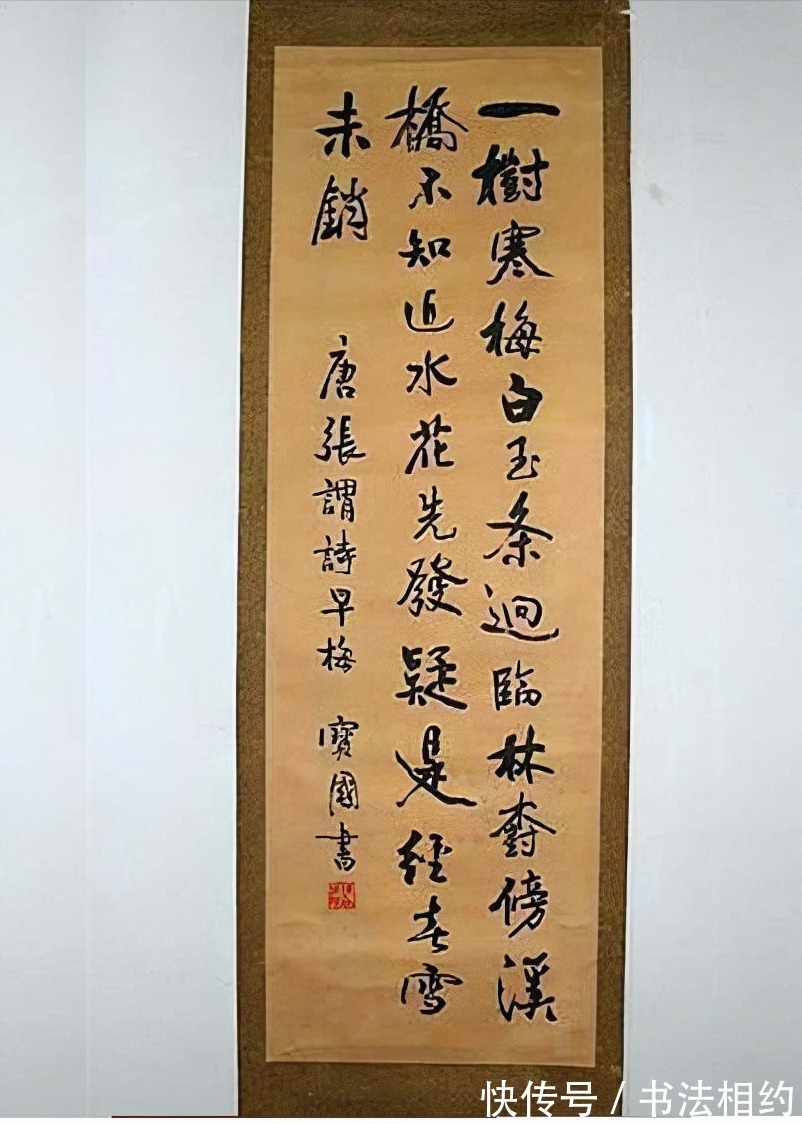 一樹寒梅白玉条迴臨林傍溪
橋不知近水花先發疑是經春雪
未銷 唐張謂詩早梅 寶國書
快传号 / 书法相约